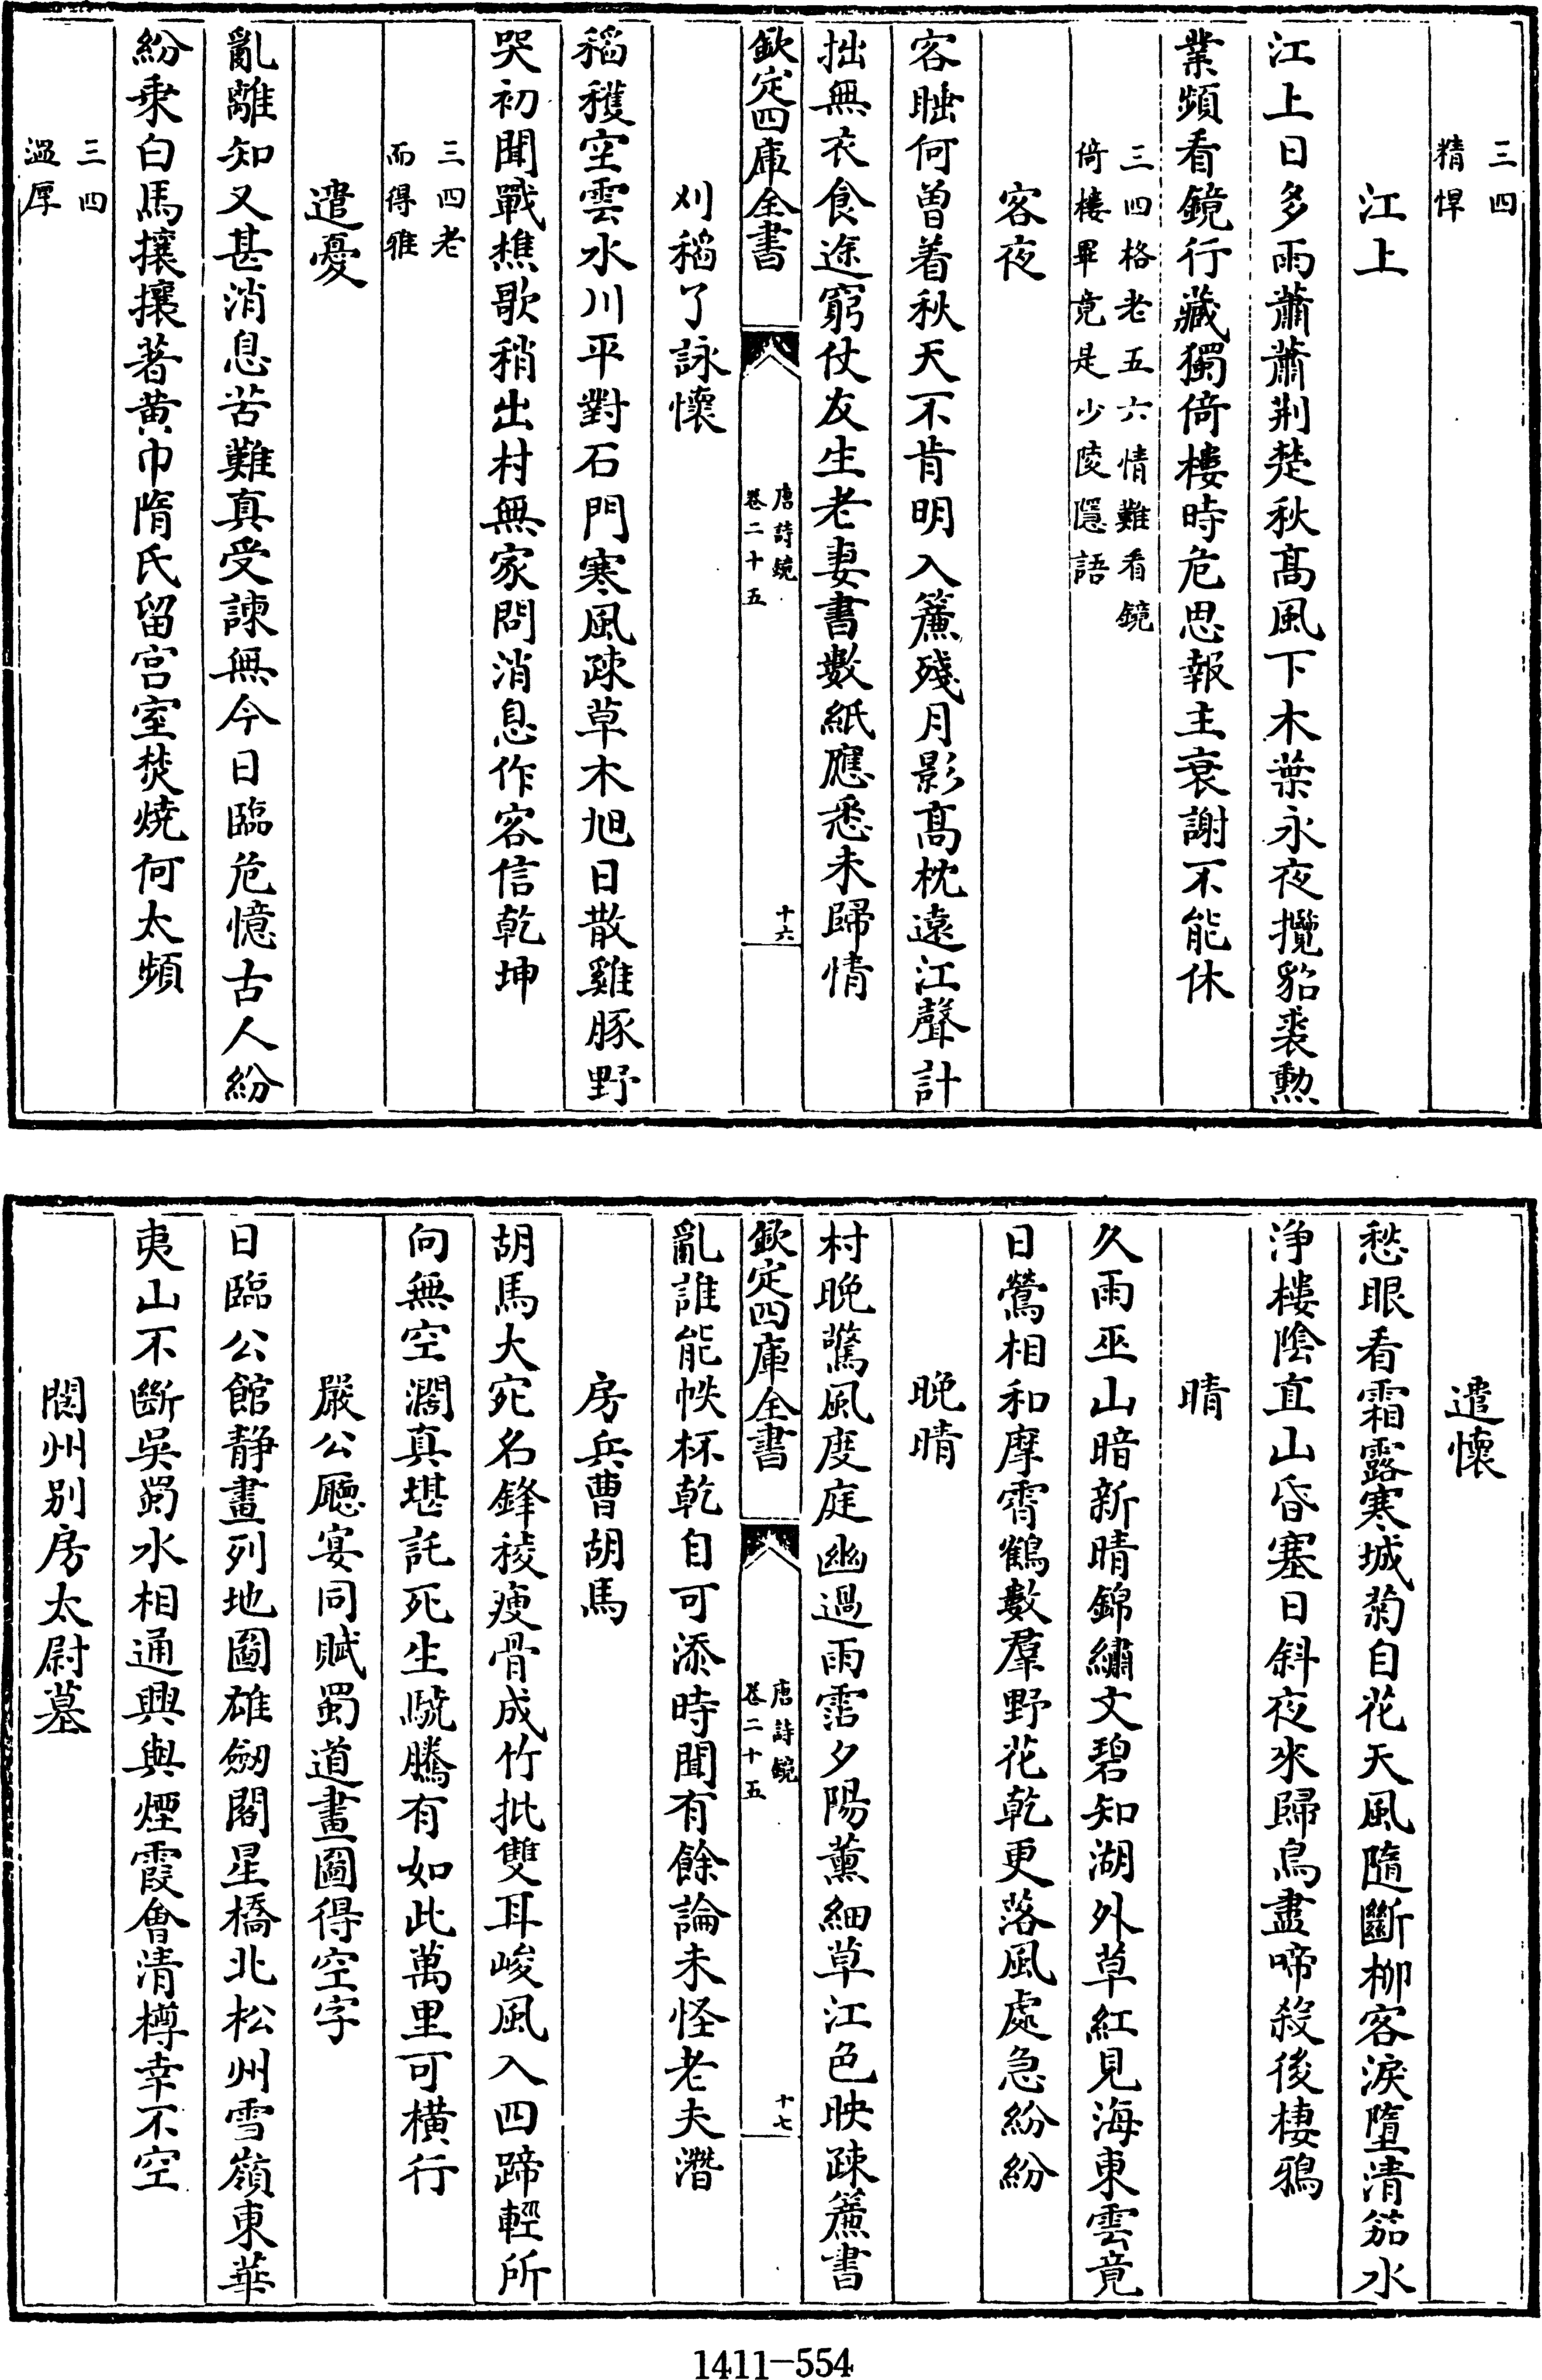 三四
精悍
江上
江上日多雨蕭蕭荆楚秋髙風下木葉永夜攬貂裘勲
業頻看鏡行藏獨倚樓時危思報主衰謝不能休
三四格老五六情難看鏡
倚樓畢竟是少陵隱語
客夜
客睡何曽着秋天不肯明入簾殘月影髙枕遠江聲計
拙無衣食途窮仗友生老妻書數紙應悉未歸情
欽定四庫全書
唐詩鏡
卷二十五
十六
刈稻了詠懷
稻穫空雲水川平對石門寒風疎草木旭日散雞豚野
哭初聞戰樵歌稍出村無家問消息作客信乾坤
三四老
而得雅
遣憂
亂離知又甚消息苦難真受諫無今日臨危憶古人紛
紛乗白馬攘攘著黄巾隋氏留宫室焚燒何太頻
三四
過厚
遣懷
愁眼看霜露寒城菊自花天風隨斷柳客淚墮清笳水
浄樓陰直山昏塞日斜夜來歸鳥盡啼殺後棲鴉
晴
久雨巫山暗新晴錦繡文碧知湖外草紅見海東雲竟
日鶯相和摩霄鶴數羣野花乾更落風處急紛紛
晚晴
村晚驚風度庭幽過雨霑夕陽薰細草江色映疎簾書
欽定四庫全書
唐詩鏡
卷二十五
十七
亂誰能帙杯乾自可添時聞有餘論未怪老夫潛
房兵曹胡馬
胡馬大宛名鋒稜瘦骨成竹批雙耳峻風入四蹄輕所
向無空濶真堪託死生驍騰有如此萬里可橫行
嚴公廳宴同賦蜀道畫圖得空字
日臨公館静畫列地圖雄劒閣星橋北松州雪嶺東華
夷山不斷吳蜀水相通興與煙霞㑹清樽幸不空
閬州别房太尉墓
1411-554